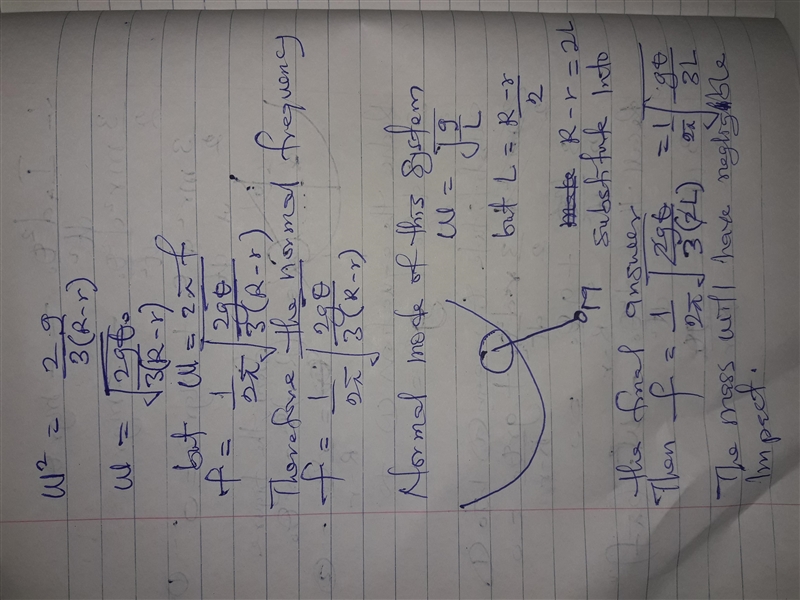 W² = 2g / 3(R-r)
W = √(2gθ / 3(R-r))
but W = 2πf
f = 1/2π √(2gθ / 3(R-r))
Therefore the normal frequency
f = 1/2π √(2gθ / 3(R-r))
Normal mode of this system
W = √(g/L)
but L = (R-r)/2
R-r = 2L
M
substitute into
the final answer
Then f = 1/2π √(2gθ / 3(2L)) = 1/2π √(gθ / 3L)
The mass will have negligible
impact.